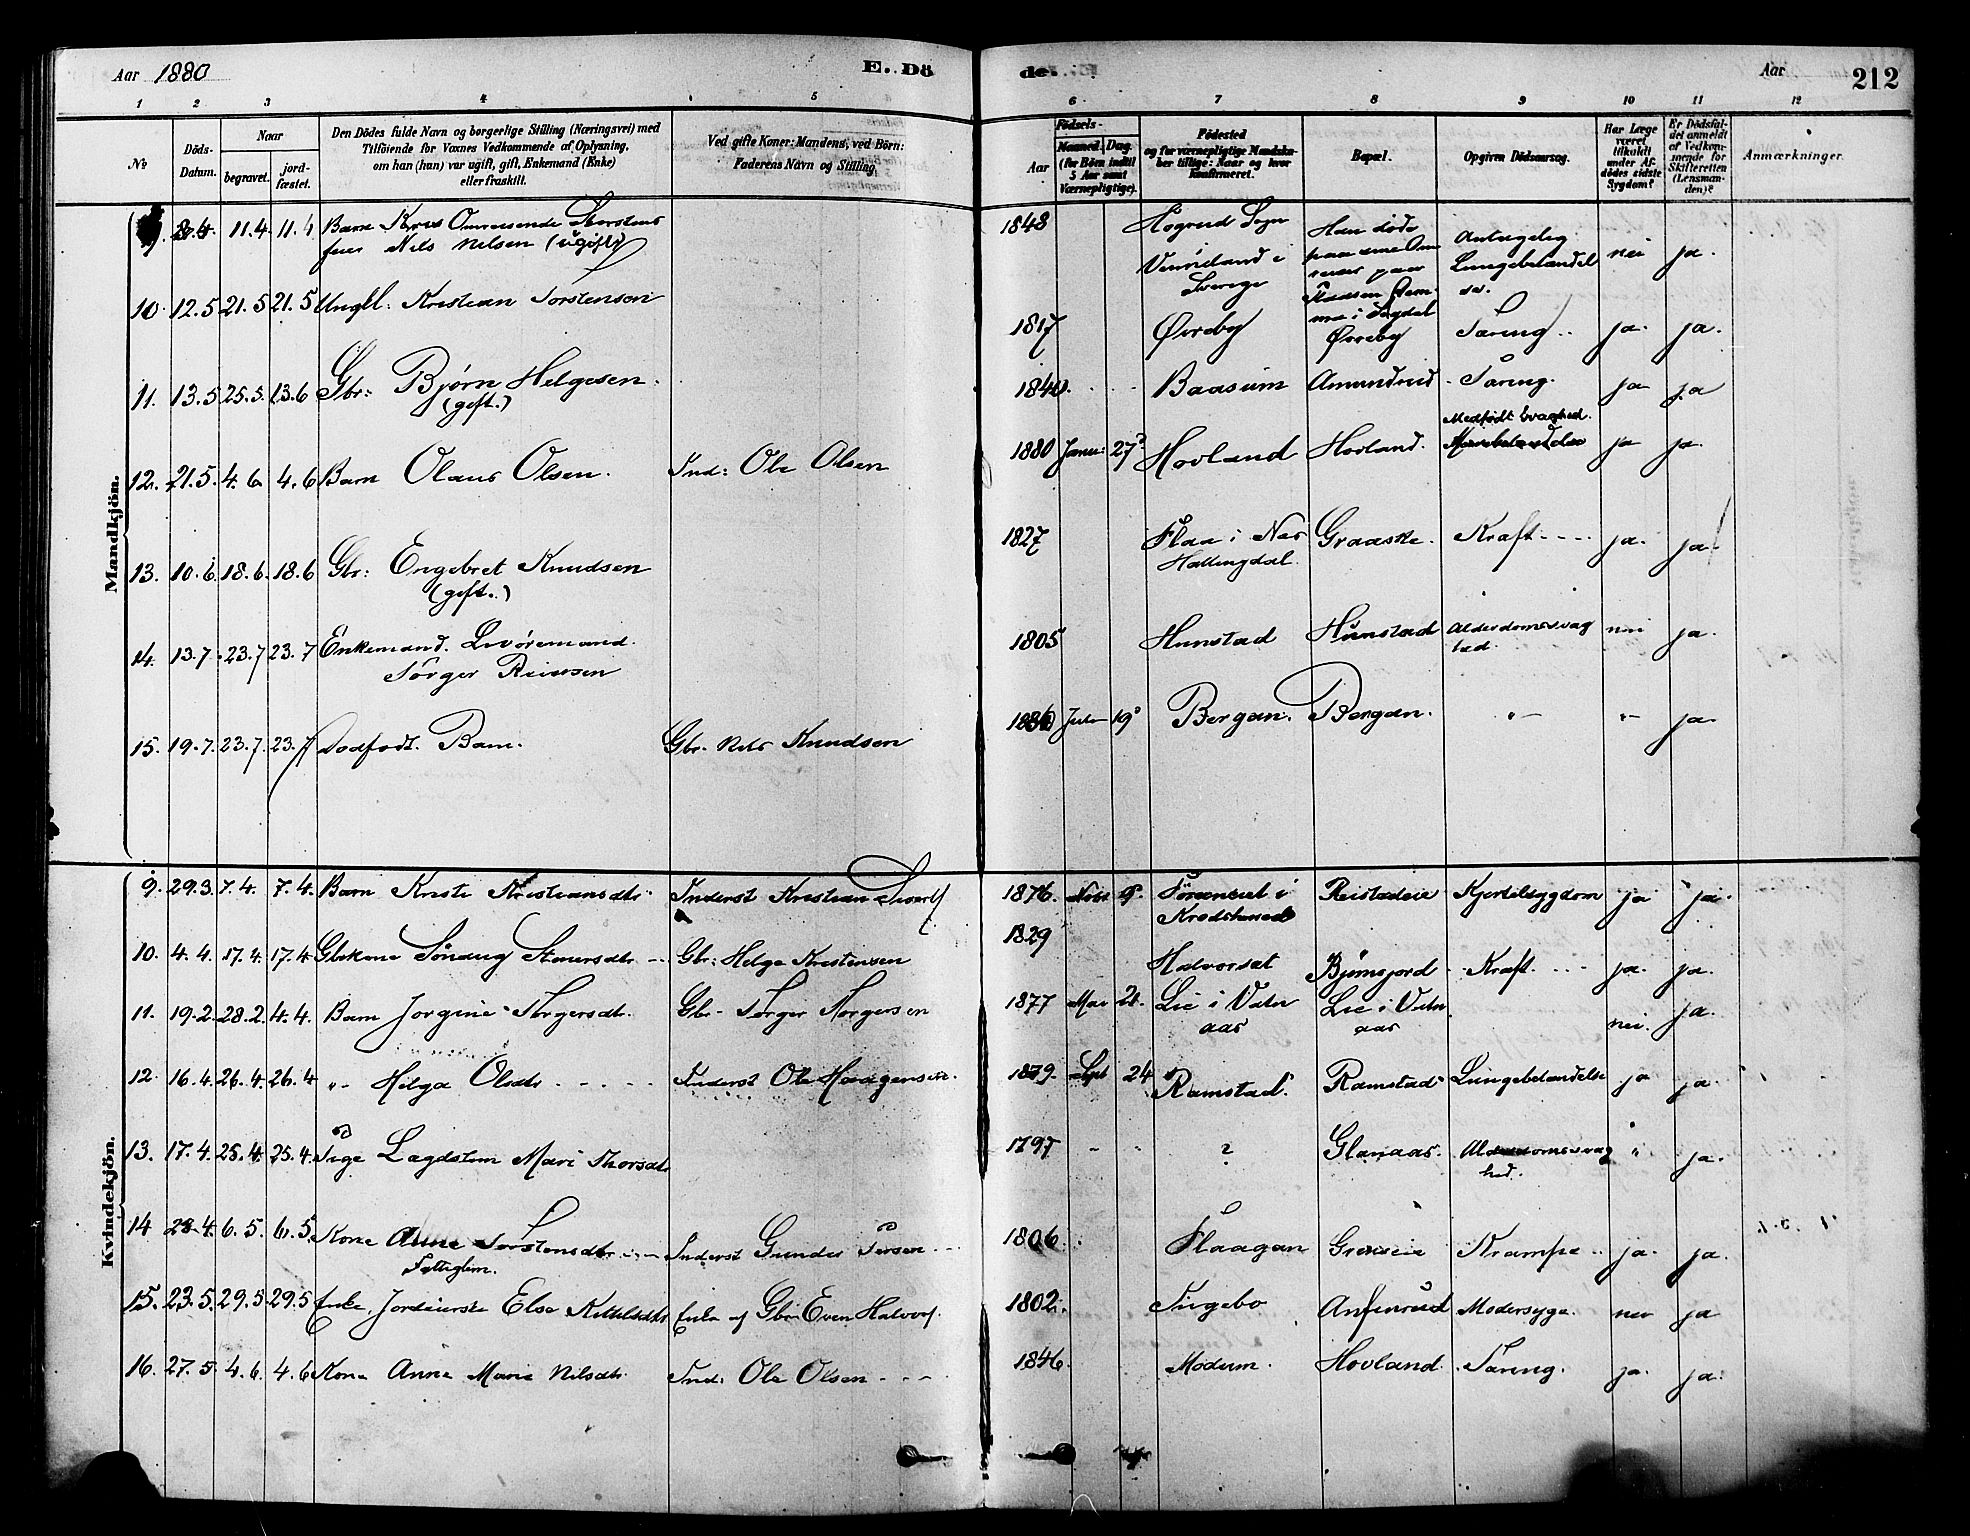 Aar 1880
E. Döde.
Aar
212
1 2 3 4 5 6 7 8 9 10 11 12
No
Döds-Datum.
Naar
begravet.
jordfæstet.
Den Dödes fulde Navn og borgerlige Stilling (Næringsvei) med
Tilföiende for Voxnes Vedkommende af Oplysning,
om han (hun) var ugift, gift, Enkemand (Enke)
eller fraskilt.
Ved gifte Koner: Mandens, ved Börn:
Faderens Navn og Stilling.
Födsels-
Aar
Maaned. Dag.
(for Börn indtil
5 Aar samt
Værnepligtige).
Födested
og for værnepligtige Mandska-
ber tillige: Naar og hvor
konfirmeret.
Bopæl.
Opgiven Dödsaarsag.
Har Læge
været
tilkaldt
under Af-
dödes sidste
Sygdom?
Er Dödsfal-
det anmeldt
af Vedkom-
mende for
Skifteretten
(Lensman-
den)?
Anmærkninger.
Mandkjön.
11.4. 11.4 Omreisende
feier Nils Nilsen (ugift) 1848 Sogn Han døde
i Sverige Antagelig Lungebetændelse. nei ja.
10. 12.5 21.5 21.5 Ungkl. Kristian Torstensen 1817 Øvreby Øvreby Tæring ja. ja.
11. 13.5 25.5. 13.6 Gbr: Bjørn Helgesen. (gift.) 1840. Baasum Amundrud Tæring. ja ja
12. 21.5. 4.6. 4.6 Barn Olaus Olsen. Ind: Ole Olsen 1880 Janu: 27 Hovland Hovland. Medfødt Svaghed. ja ja.
13. 10.6. 18.6. 18.6 Gbr: Engebret Knudsen (gift.) 1827 Flaa i Nes Hallingdal. Graaske. Kraft ja. ja.
14. 13.7. 23.7 23.7 Enkemand. 1805 Hunstad Hunstad Alderdomssvaghed. nei ja.
15. 19.7. 23.7. 23.7 Dødfødt. Barn. Gbr. Nils Knudsen 1880 Juli 19 Bergan. Bergan. " " ja.
Kvindekjön.
9. 29.3. 7.4. 7.4. Barn Kristi Kristiansdtr. Inderst Kristian 1876. Novbr 9. i Krødsherred Reistadeie Kjertelsygdom ja ja.
10. 4.4. 17.4. 17.4 Gbrkone Gbr: Helge Kristensen 1829 Halvorset Bjørnsjord Kraft. ja. ja.
11. 19.2. 28.2. 4.4. Barn Jorgine Thorgersdtr. Gbr. Torger Torgersen 1877 Mai Lie i Vatnaas Lie i Vatnaas nei. ja.
12. 16.4. 26.4. 26.4. " Helga Olsdtr. Inderst Ole Haagensen. 1879. Sept 24 Ramstad. Ramstad Lungebetændelse ja ja.
13. 17.4. 25.4. 25.4. Pige Lægdslem Mari Thorsdtr 1797 " " ? Glanaas. Alderdomssvaghed. " ja.
14 28.4. 6.5. 6.5. Kone Anne Torstensdtr. Fattiglem. Inderst Gunder 1806. Flaagan Krampe ja. ja.
15. 23.5. 29.5. 29.5 Enke, Else Kittilsdtr Enke af Gbr. Even Halvors. 1802. Ingebo Anfinrud Modersyge. nei ja
16. 27.5 4.6. 4.6 Kone Anne Marie Nilsdtr. Ind: Ole Olsen 1846. Modum. Hovland. Tæring. ja. ja.